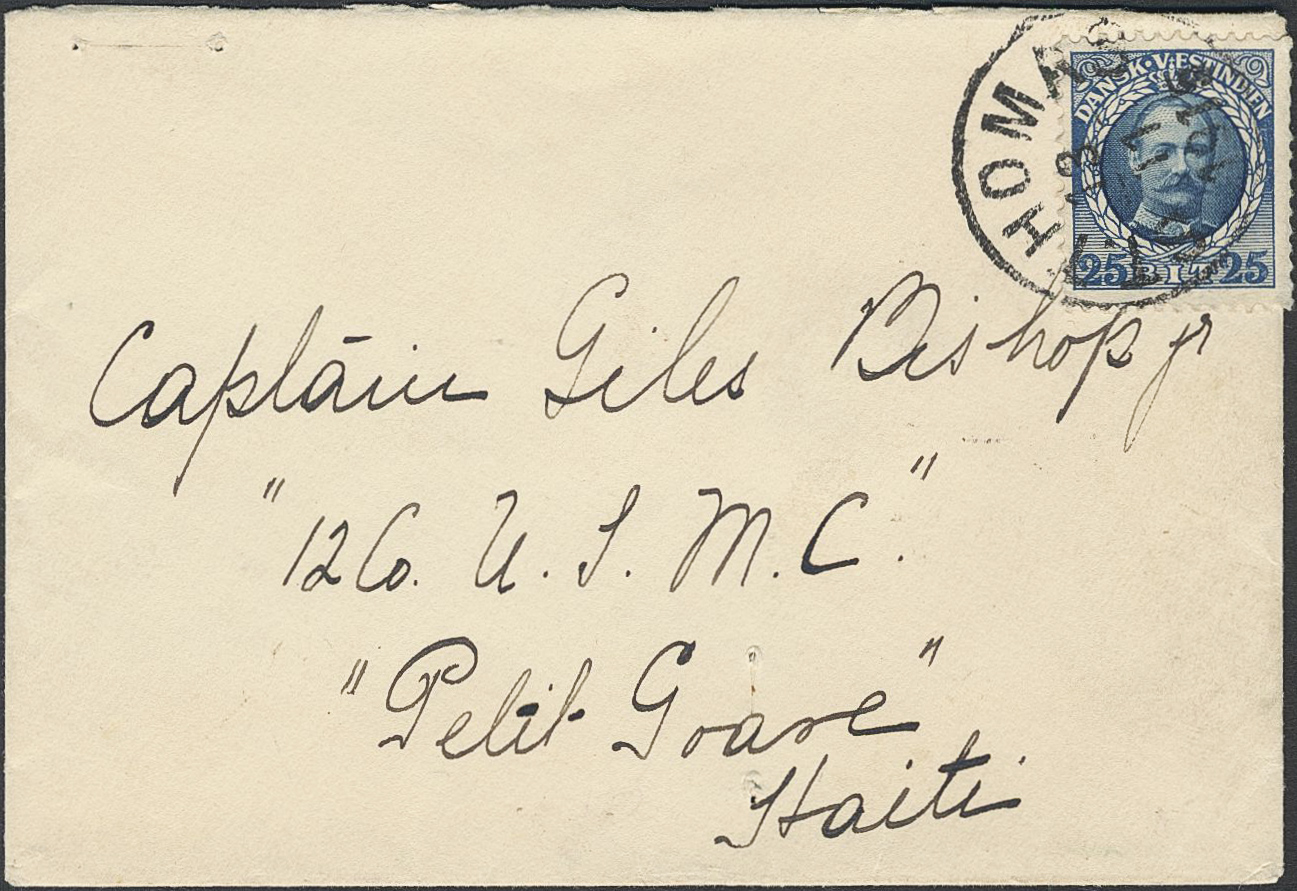 DANSK·VESTINDIEN
25 BIT 25
HOMAS
Captain Giles Bishop jr
"12 Co. U. S. M. C."
"Petit Goave"
Haiti